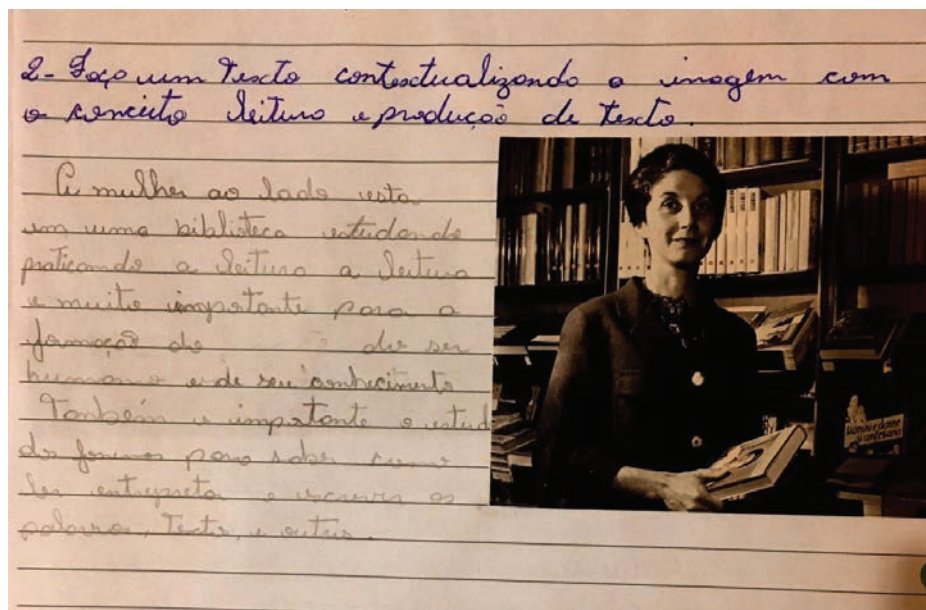 2- Faça um Texto contextualizando a imagem com
o conceito leitura e produção de texto.
A mulher ao lado esta
em uma biblioteca estudando
praticando a leitura a leitura
e muito importante para a
formação do do ser
humano e de seu conhecimento
Também e importante o estud
da para saber como
ler entrepreta e escrever as
palavras, texto, e outros.